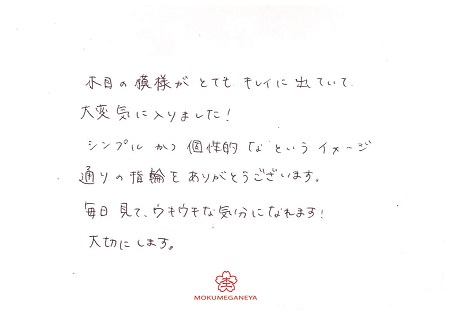 木目の模様がとてもキレイに出ていて
大変気に入りました！
シンプルかつ個性的なというイメージ
通りの指輪をありがとうございます。
毎日見て、ウキウキな気分になれます！
大切にします。
杢
MOKUMEGANEYA